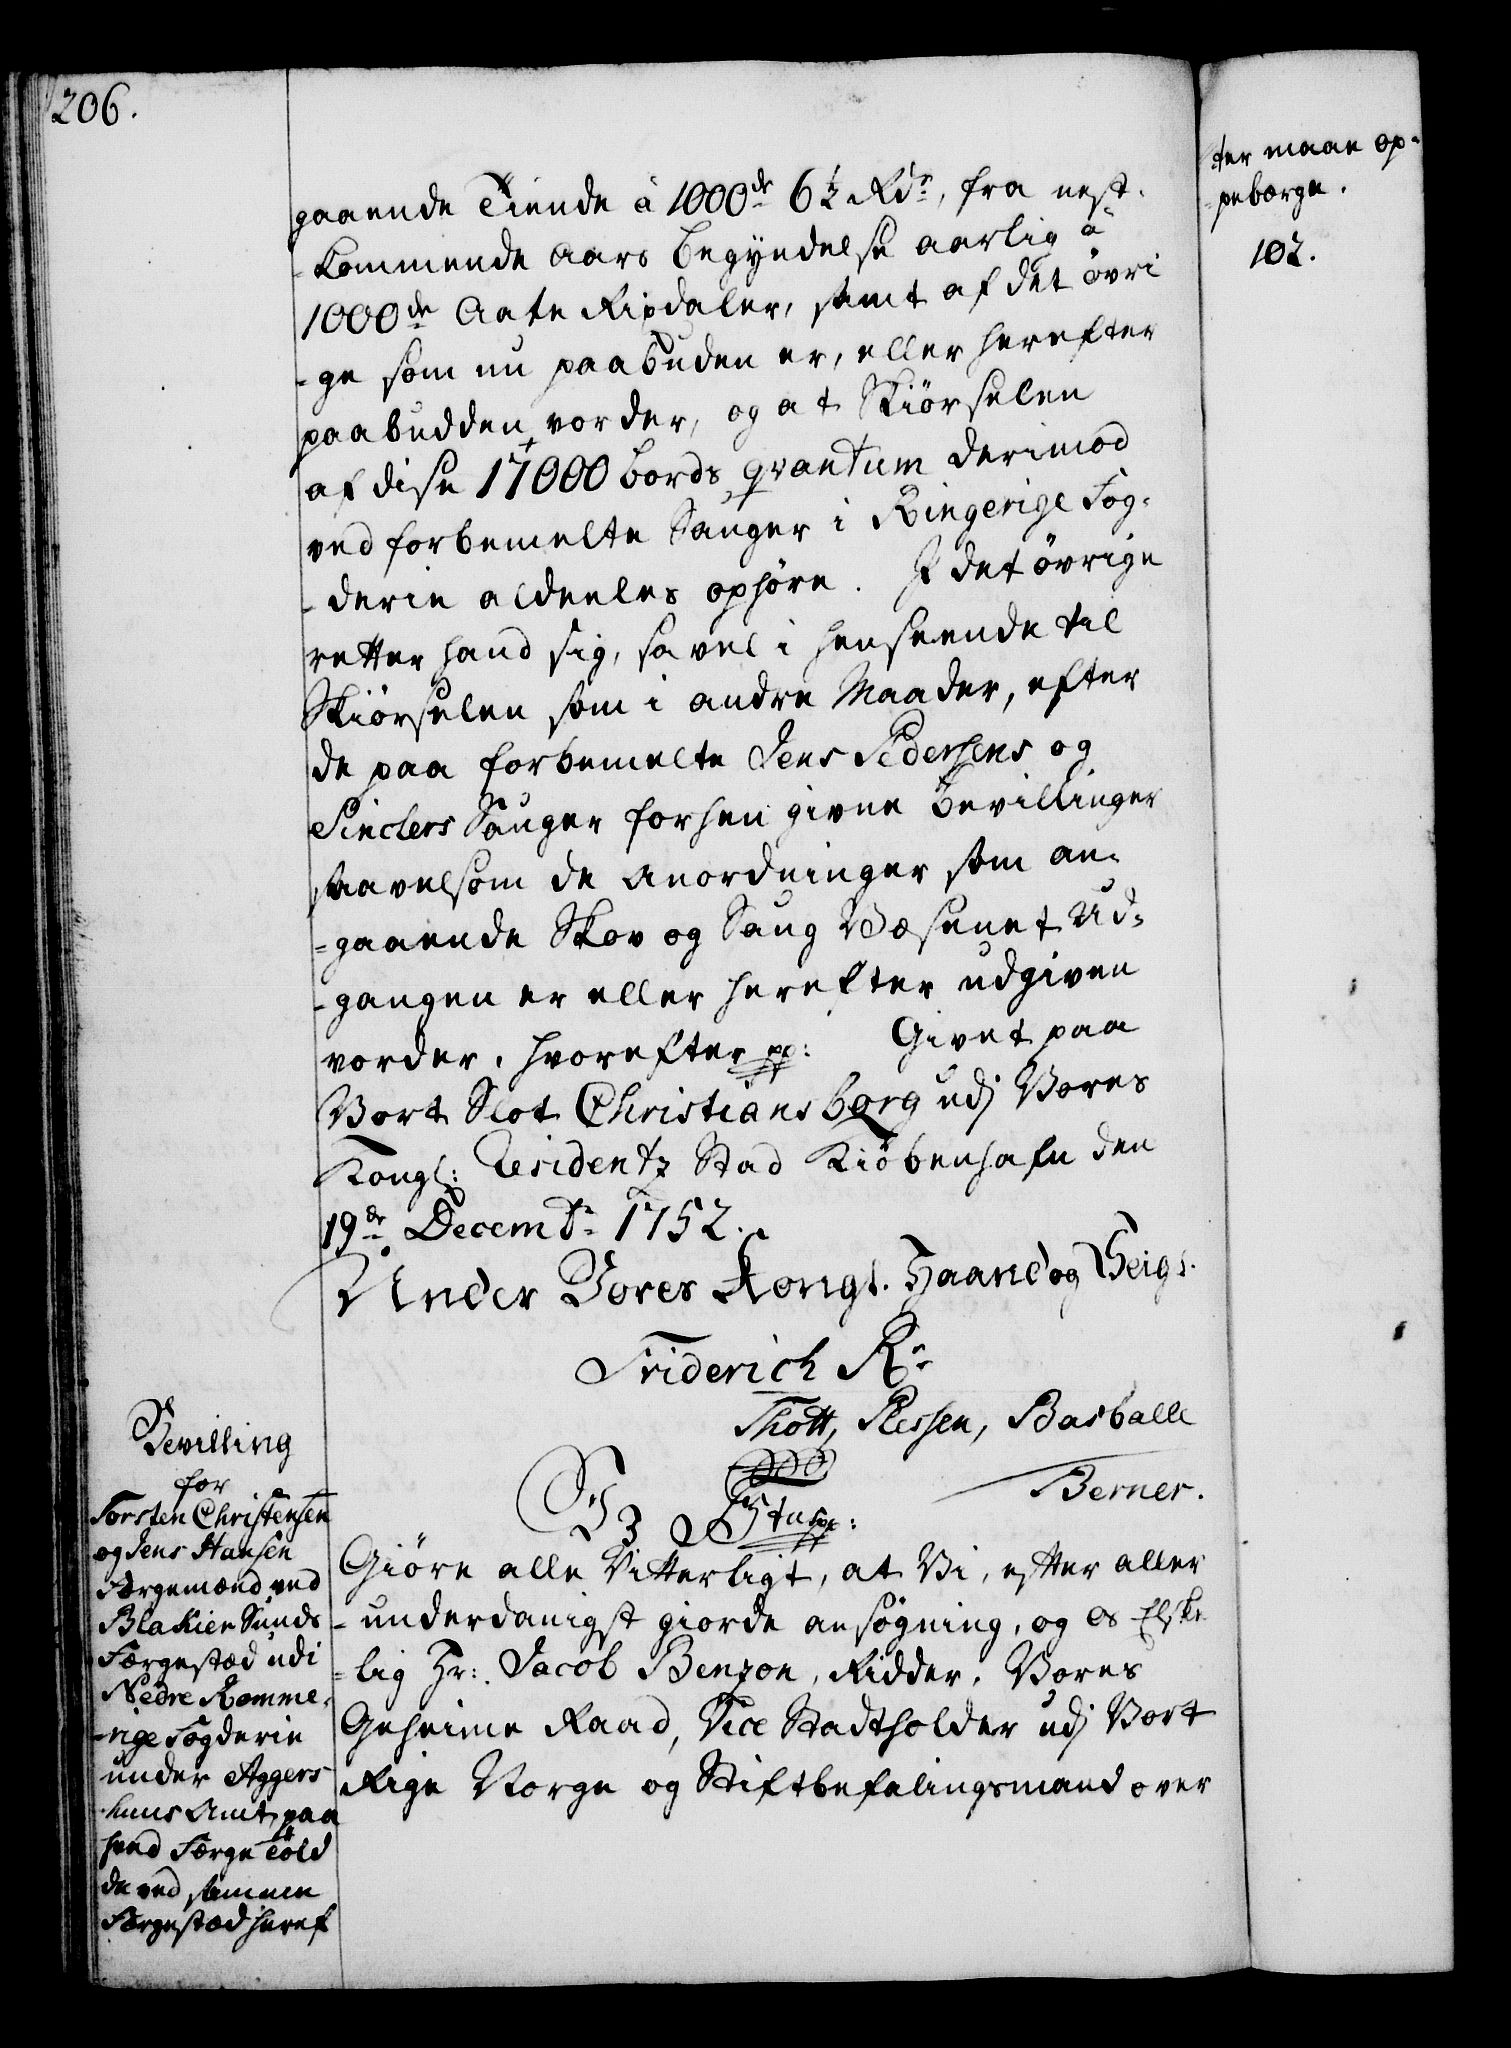 206.
gaaende Tiende à 1000de 6½ Rdr, fra nest-
-kommende Aars begyndelse aarlig à
1000de Aate Rixdaler, samt af det övri
-ge som nu paabuden er, eller herefter
paabudden vorder, og at Skiörselen
af dise 17000 bords qvantum derimod
ved forbemelte Sauger i Ringerige Fog-
-derie aldeeles ophöre. I det övrige
retter hand sig, savel i henseende til
Skiörselen som i andre Maader, efter
de paa forbemelte Jens Pedersens og
Sinclers Sauger forhen givne bevillinger
saavelsom de Anordninger som an-
-gaaende Skov og Saug Væsenet Ud-
-gangen er eller herefter udgiven
vorder. hvorefter pp: Givet paa
Vort Slot Christiansborg udj Vores
Kongl: Residentz Stad Kiöbenhafn den
19de Decembr 1752.
Under Vores Kongl. Haand og Seigl.
Friderich R.
Thott, Plessen, Barballe
Berner.
Bevilling
for
Torsten Christensen
og Jens Hansen
Færgemænd ved
Blakier Sunds
Færgestæd udi
Nedre Romme-
-rige Fogderie
under Aggers
huus Amt, paa
hvad Færge Told
de ved samme
Færgestæd heref
Giöre alle Vitterligt, at Vi, efter aller
-underdanigst giorde ansögning, og os Elske
-lig Hr: Jacob Benzon, Ridder, Vores
Geheime Raad, Vice Stadtholder udj Vort
Rige Norge og Stiftbefalingsmand over
ter maae op-
-peborge.
102.